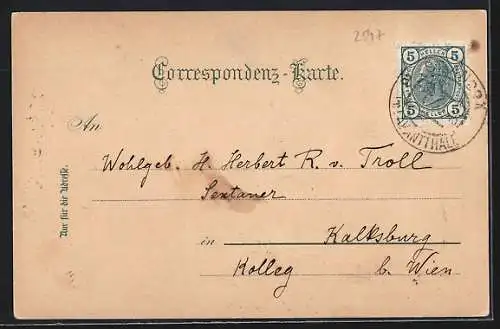 2847
Correspondenz-Karte.
5 HELLER 5
5 HELLER 5
An
Wohlgeb. H. Herbert R. v. Troll
Sextaner
in Kalksburg
Kolleg b. Wien
Nur für die Adresse.